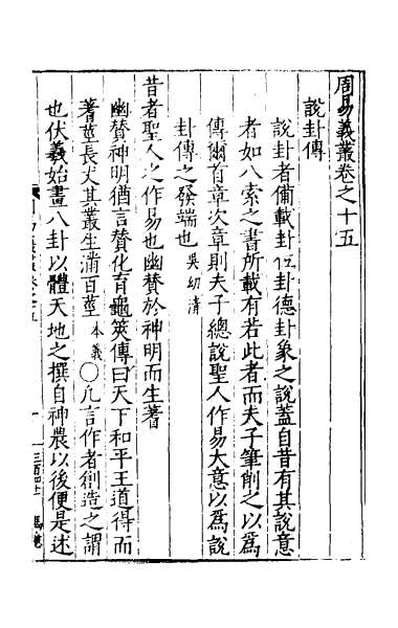 周易義叢卷之十五
說卦傳
說卦者備載卦位卦德卦象之說蓋自昔有其說意
者如八索之書所載有若此者而夫子筆削之以爲
傳爾首章次章則夫子總說聖人作易大意以爲說
卦傳之發端也吳幼清
昔者聖人之作易也幽贊於神明而生蓍
幽贊神明猶言贊化育龜筴傳曰天下和平王道得而
蓍莖長丈其叢生滿百莖本義〇凡言作者創造之謂
也伏羲始畫八卦以體天地之撰自神農以後便是述